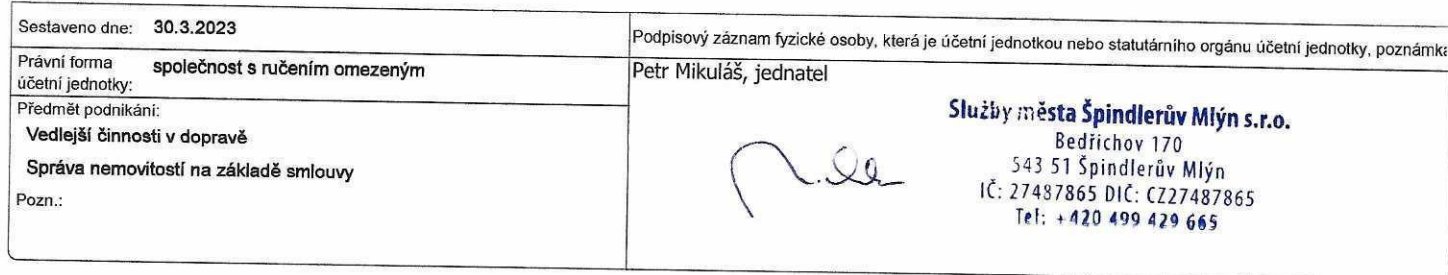 Sestaveno dne: 30.3.2023
Právní forma
účetní jednotky: společnost s ručením omezeným
Předmět podnikání:
Vedlejší činnosti v dopravě
Správa nemovitostí na základě smlouvy
Pozn.:
Podpisový záznam fyzické osoby, která je účetní jednotkou nebo statutárního orgánu účetní jednotky, poznámka
Petr Mikuláš, jednatel
Služby města Špindlerův Mlýn s.r.o.
Bedřichov 170
543 51 Špindlerův Mlýn
IČ: 27487865 DIČ: CZ27487865
Tel: +420 499 429 665